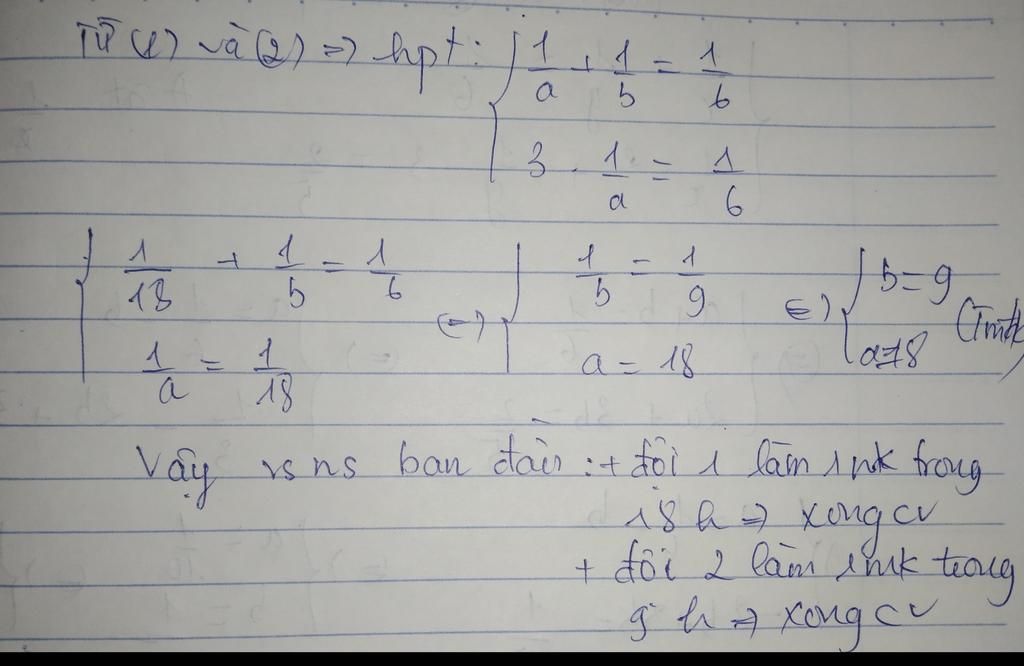 Từ (1) và (2) => hpt: { 1/a + 1/b = 1/6
3 . 1/a = 1/6
{ 1/18 + 1/b = 1/6 (=) { 1/b = 1/9 (=) { b = 9
1/a = 1/18 a = 18 a=18 (Tmđk)
Vậy vs ns ban đầu : + đội 1 làm 1 mk trong
18 h => xong cv
+ đội 2 làm 1 mk trong
9 h => xong cv